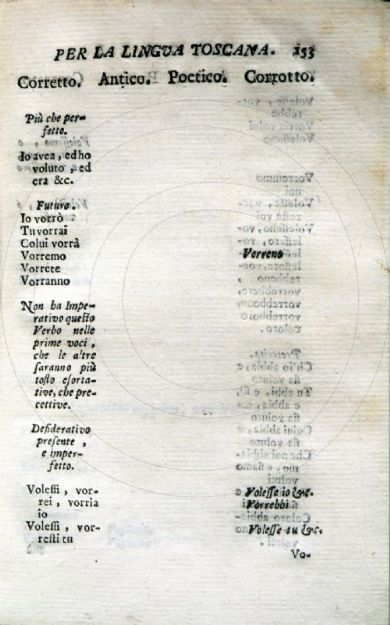 PER LA LINGVA TOSCANA. 153
Corretto. Antico. Poetico. Corrotto.
Più che per-
fetto.
Io avea, ed ho
voluto, ed
era &c.
Futuro.
Io vorrò
Tu vorrai
Colui vorrà
Vorremo Vorreno
Vorrete
Vorranno
Non ha Impe-
rativo questo
Verbo nelle
prime voci,
che le altre
saranno più
tosto esorta-
tive, che pre-
cettive.
Desiderativo
presente,
e imper-
fetto.
Volessi, vor- Volesse io &c.
rei, vorria Vorrebbi
io
Volessi, vor- Volesse tu &c.
resti tu
Vo-